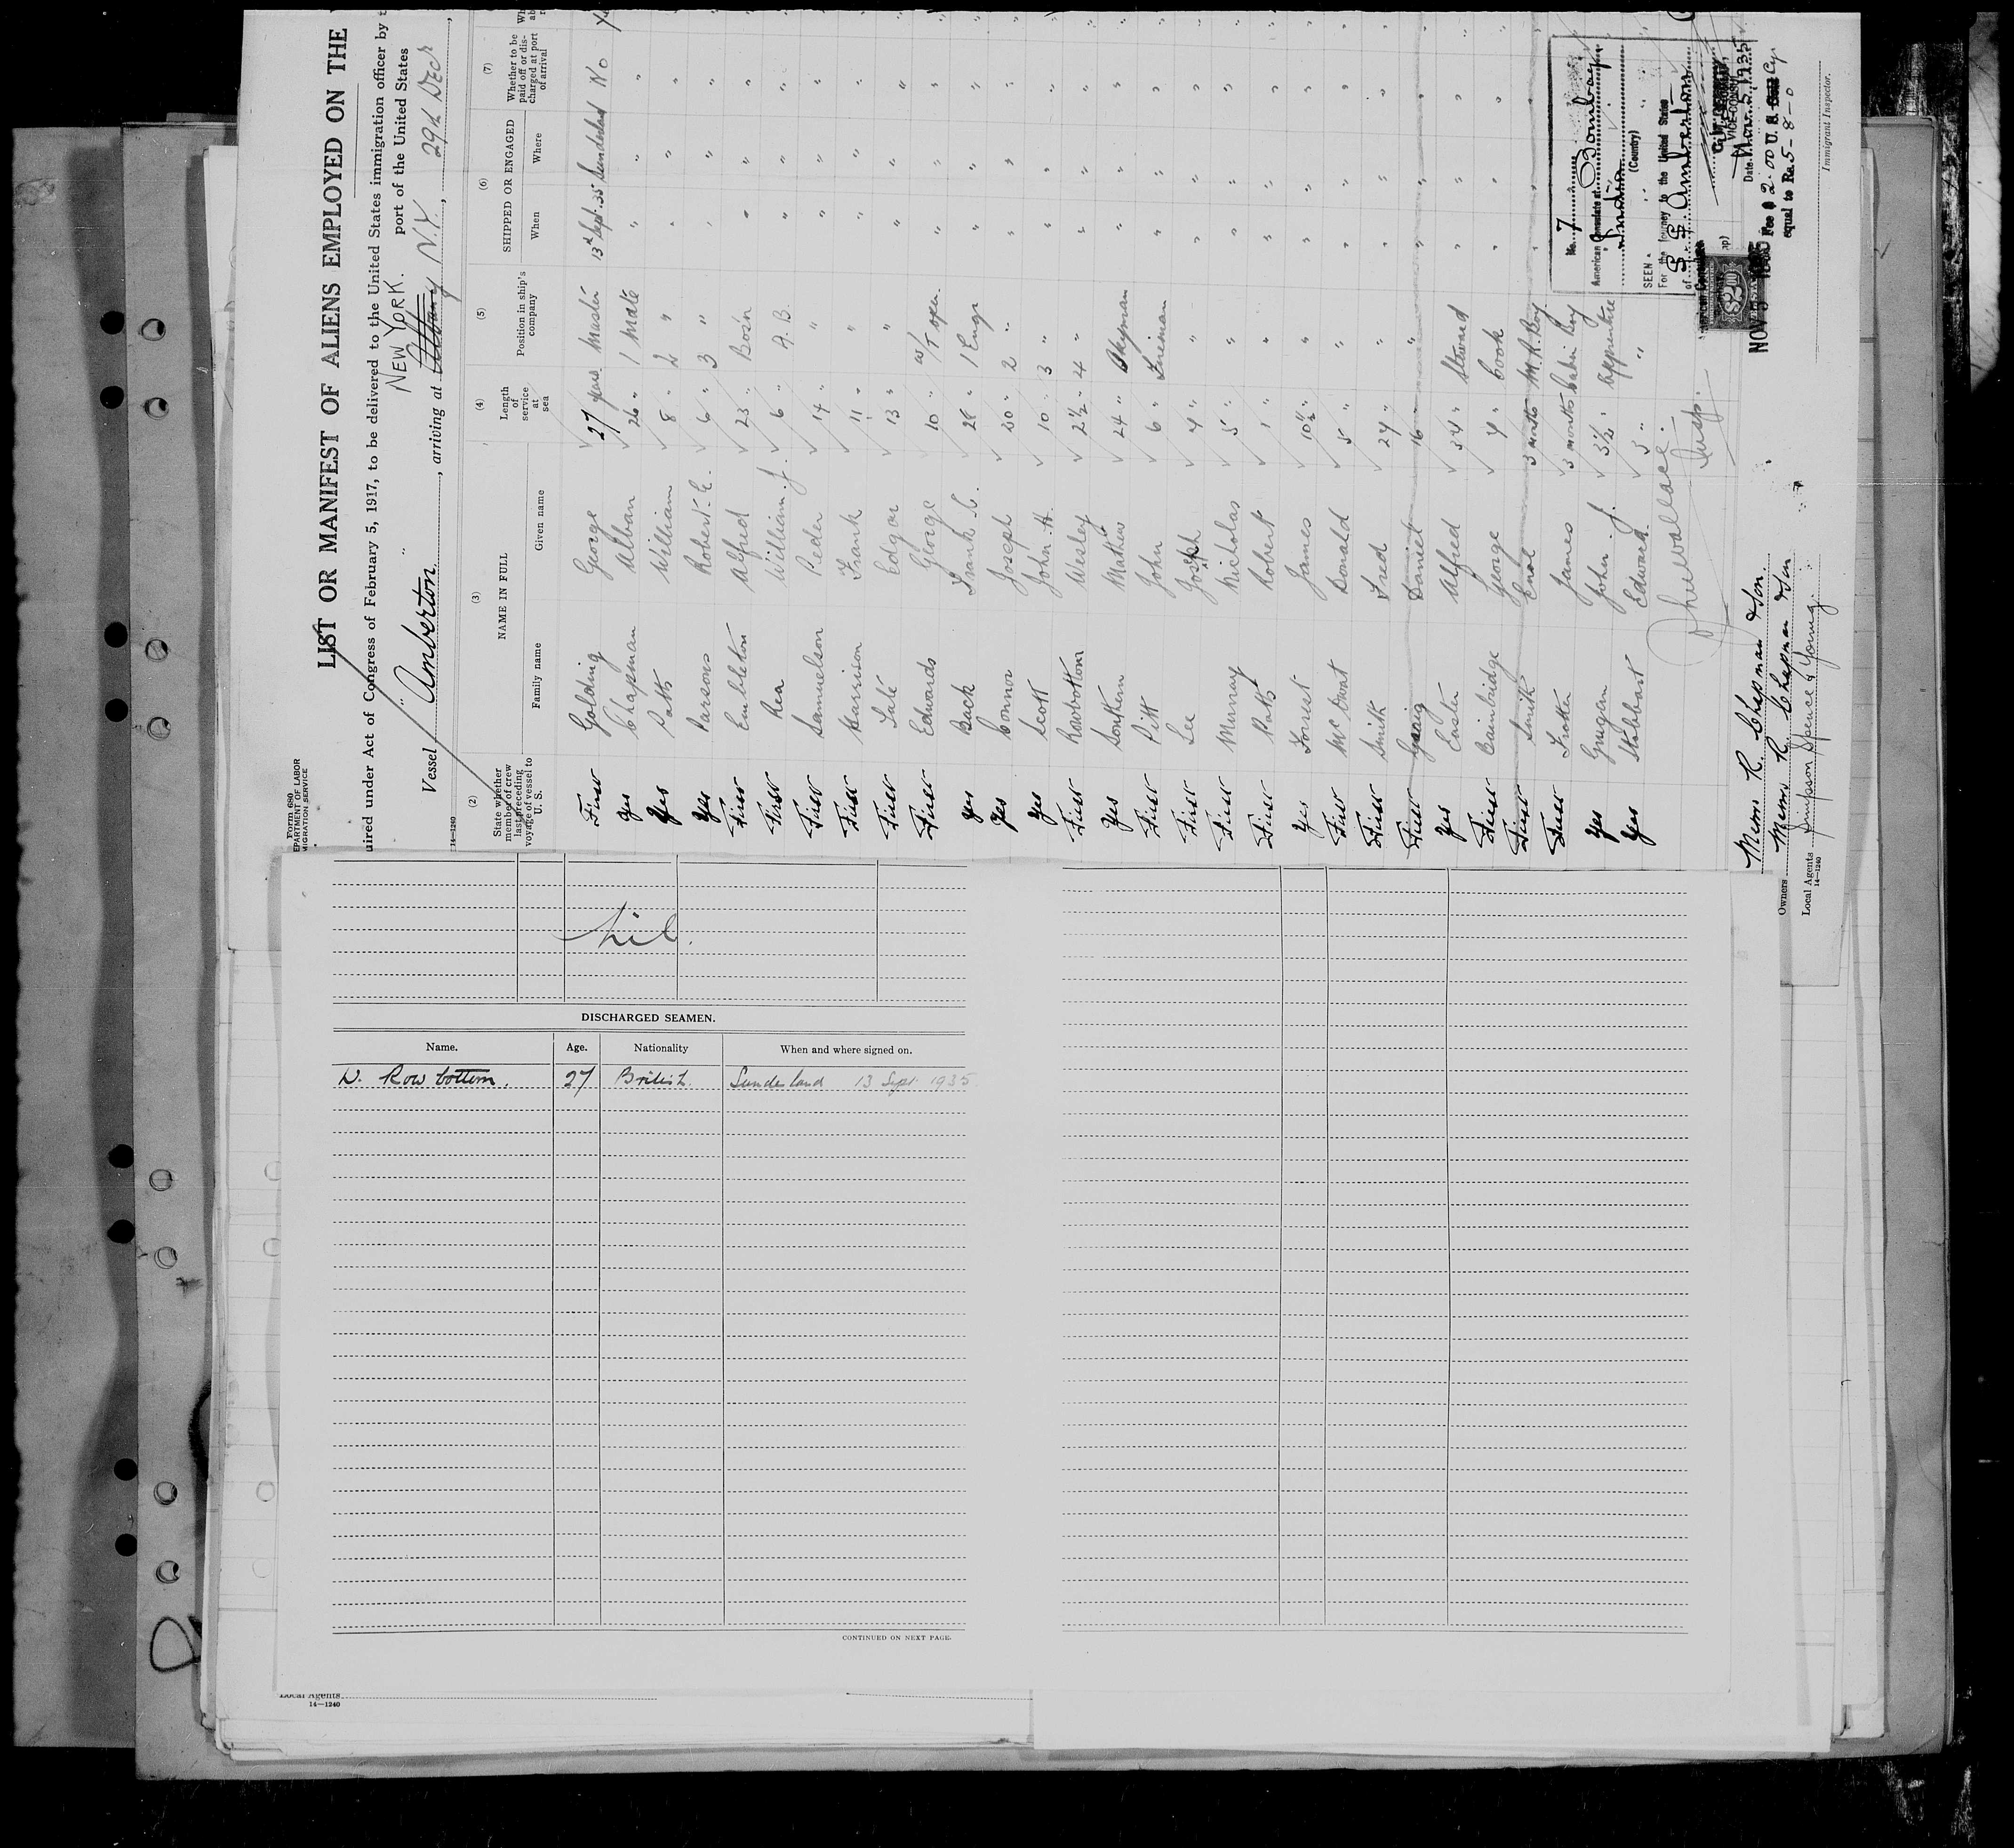 Form 680
DEPARTMENT OF LABOR
IMMIGRATION SERVICE
LIST OR MANIFEST OF ALIENS EMPLOYED ON THE
uired under Act of Congress of February 5, 1917, to be delivered to the United States immigration officer by
NEW YORK. port of the United States
Vessel "Amberton", arriving at Albany N.Y., 29th Decr
14—1240
(2) (3) (4) (5) (6) (7)
State whether member of crew last preceding voyage of vessel to U. S.
NAME IN FULL
Family name Given name
Length of service at sea
Position in ship's company
SHIPPED OR ENGAGED
When Where
Whether to be paid off or discharged at port of arrival
First Golding George 27 years Master 13th Sept. 35 Sunderland No
Yes Chapman Alban 26 " 1 Mate " " "
Yes Potts William 8 " 2 " " " "
Yes Parsons Robert E. 6 " 3 " " " "
First Embleton Alfred 23 " Bos'n " " "
First Rea William J. 6 " A.B. " " "
First Samuelson Peder 14 " " " " "
First Harrison Frank 11 " " " " "
First Tate Edgar 13 " " " " "
First Edwards George 10 " W/T oper. " " "
Yes Back Frank C. 28 " 1 Engr " " "
Yes Connor Joseph 20 " 2 " " " "
Yes Scott John H. 10 " 3 " " " "
First Rowbottom Wesley 2½ " 4 " " " "
Yes Southern Mathew 24 " Dkyman " " "
First Pitt John 6 " Fireman " " "
First Lee Joseph 4 " " " " "
First Murray Nicholas 5 " " " " "
First Potts Robert 1 " " " " "
Yes Forrest James 10½ " " " " "
First Donald 5 " " " " "
First Smith Fred 24 " " " " "
First Craig Daniel 16 " " " " "
Yes Easten Alfred 34 " Steward " " "
First Bainbridge George 4 " Cook " " "
First Smith 3 months M.R. Boy " " "
First Trotter James 3 months Cabin Boy
Yes Grugan John J. 3½ " Apprentice
Yes Stobbart Edward 3 " "
Insp.
Owners Messrs R. Chapman & Son.
Messrs R. Chapman & Son
Local Agents Simpson Spence & Young.
14—1240
Immigrant Inspector.
No. 7
American Consulate at Bombay
India
(Country)
SEEN
For the journey to the United States
of S.S. Amberton
VICE CONSUL
Date Nov. 5, 1935
Fee $2.00 U.S. Cy.
equal to Rs. 5-8-0
NOV 5 1935
nil.
DISCHARGED SEAMEN.
Name. Age. Nationality When and where signed on.
W. Rowbottom. 27 British. Sunderland 13 Sept. 1935
CONTINUED ON NEXT PAGE.
Local Agents
14—1240